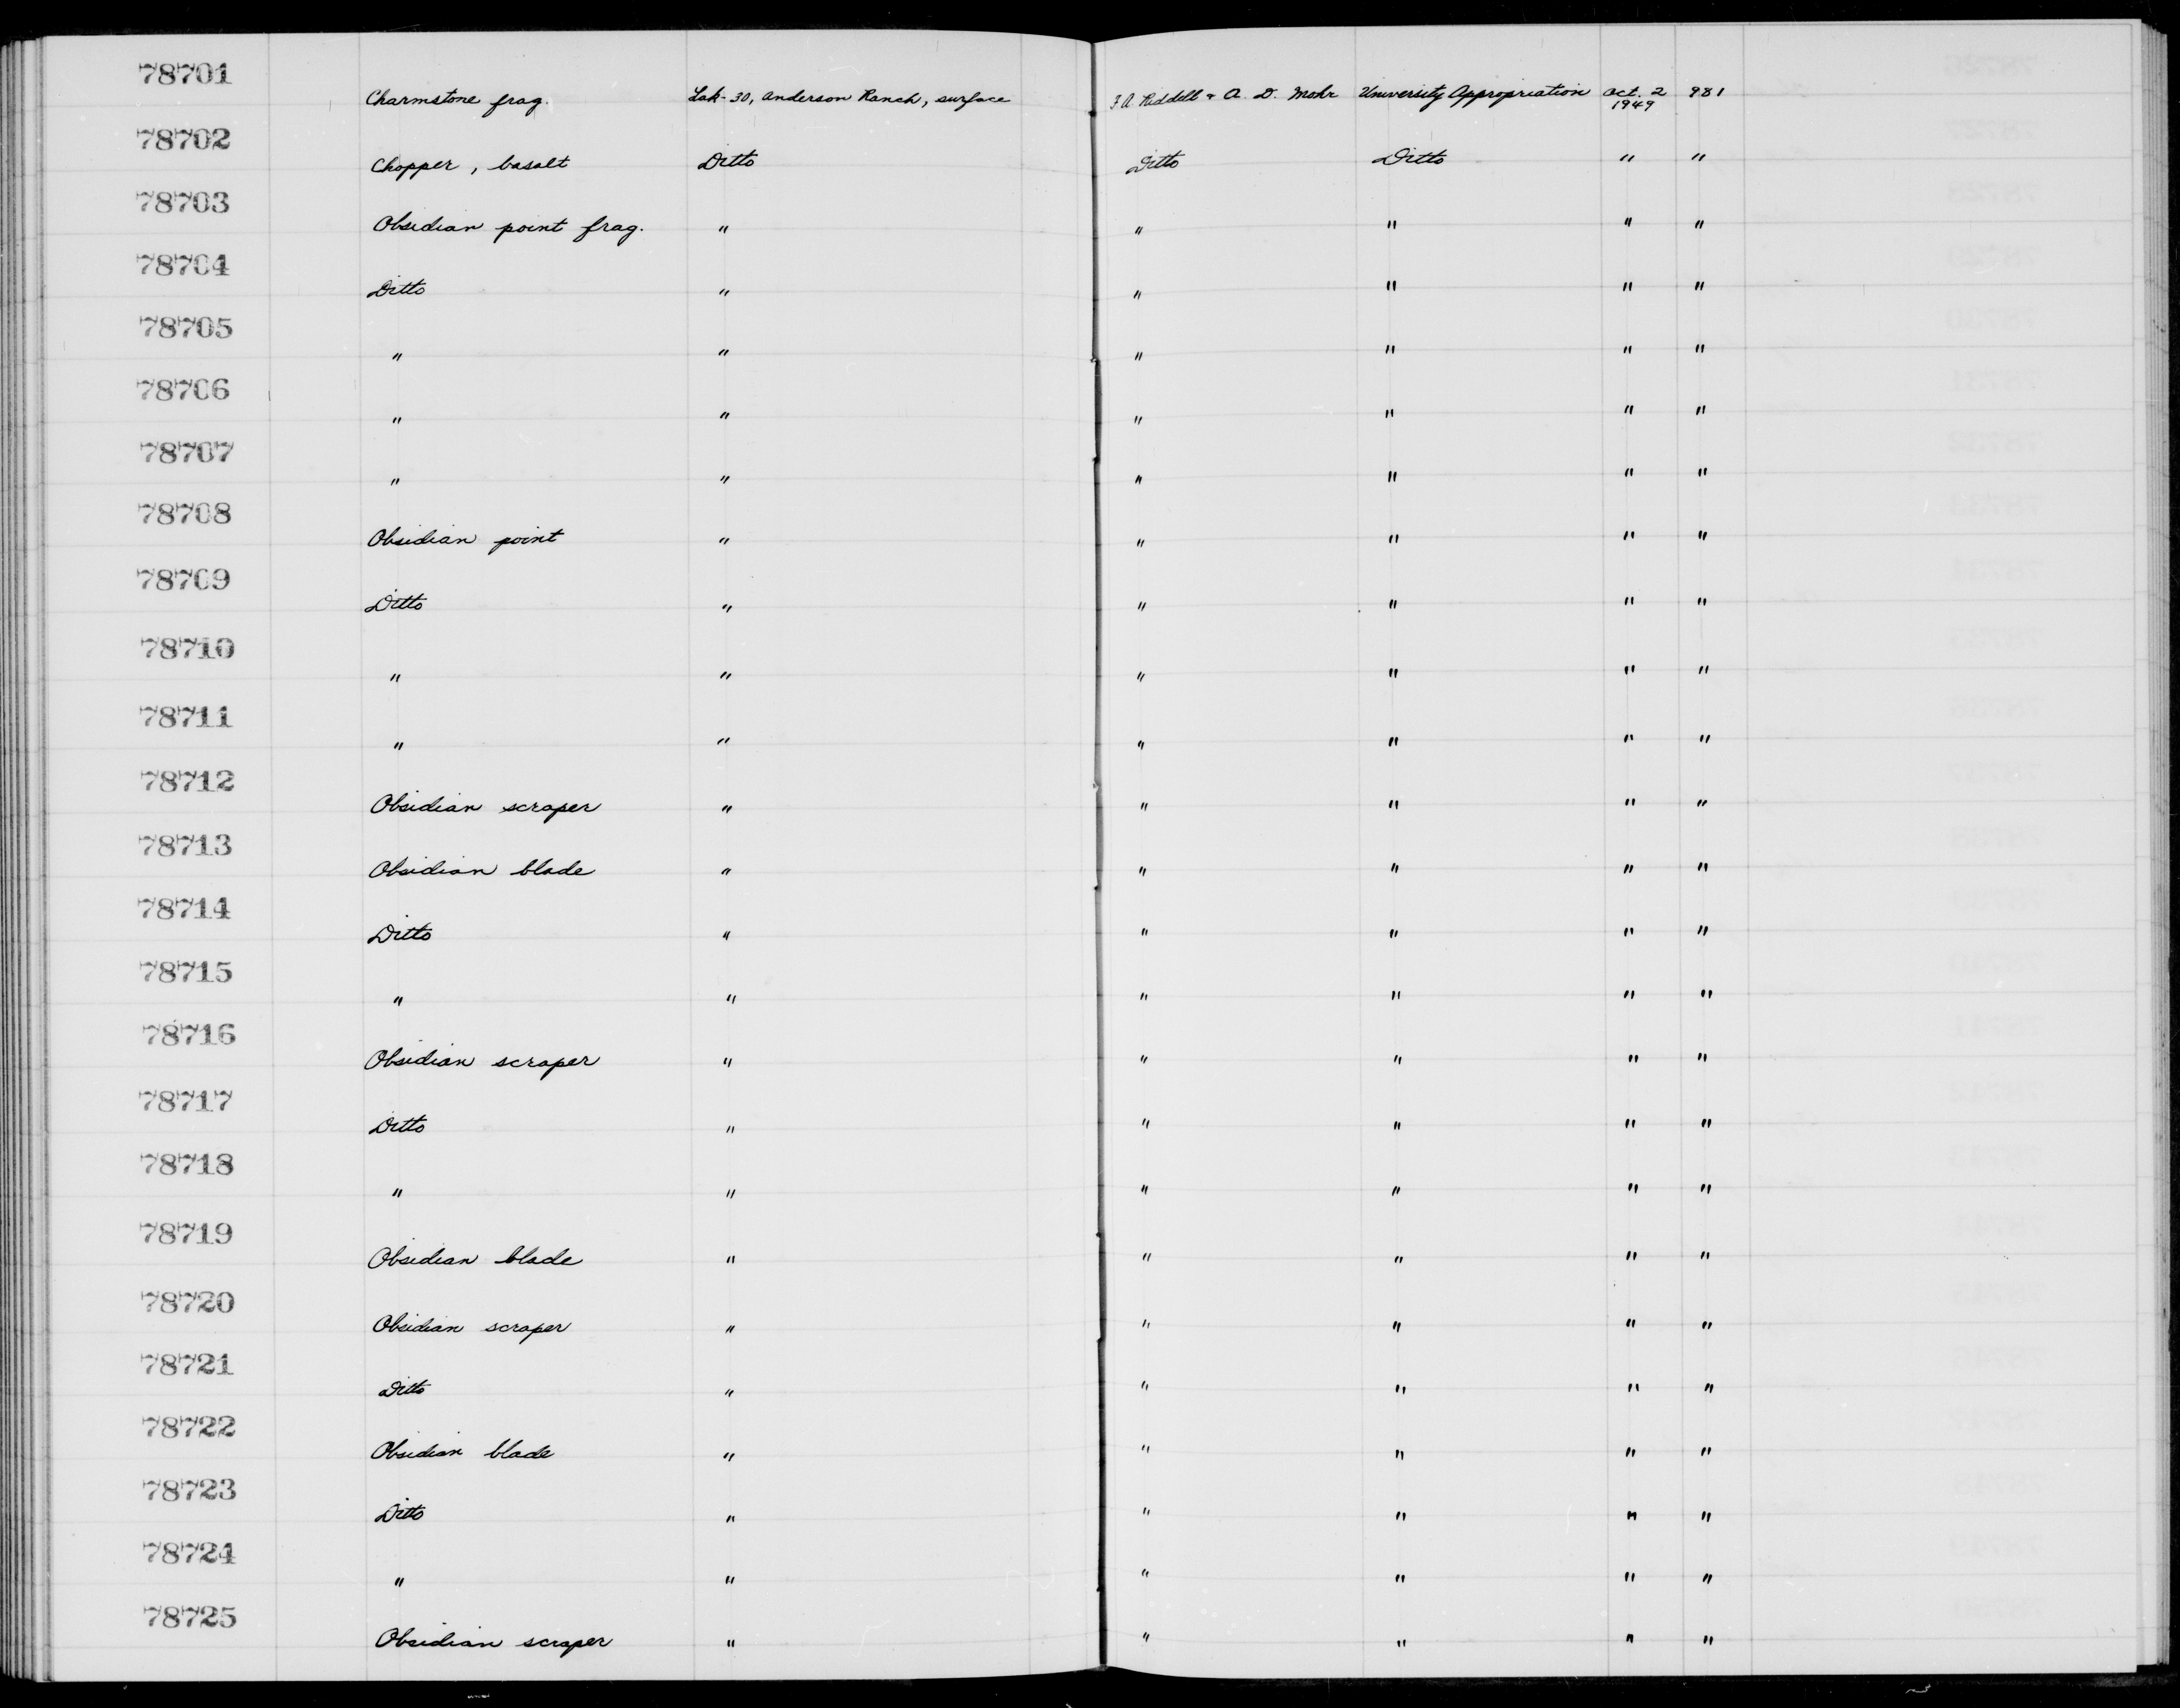 78701
Charmstone frag. Lak-30, Anderson Ranch, surface F. A. Riddell & A. D. Mohr University Appropriation Oct. 2 1949 981
78702
Chopper, basalt Ditto Ditto Ditto " "
78703
Obsidian point frag. " " " " "
78704
Ditto " " " " "
78705
" " " " " "
78706
" " " " " "
78707
" " " " " "
78708
Obsidian point " " " " "
78709
Ditto " " " " "
78710
" " " " " "
78711
" " " " " "
78712
Obsidian scraper " " " " "
78713
Obsidian blade " " " " "
78714
Ditto " " " " "
78715
" " " " " "
78716
Obsidian scraper " " " " "
78717
Ditto " " " " "
78718
" " " " " "
78719
Obsidian blade " " " " "
78720
Obsidian scraper " " " " "
78721
Ditto " " " " "
78722
Obsidian blade " " " " "
78723
Ditto " " " " "
78724
" " " " " "
78725
Obsidian scraper " " " " "